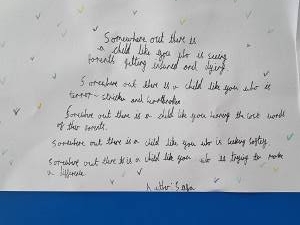 Somewhere out there is
a child like you who is seeing
parents getting injured and dying.
Somewhere out there is a child like you who is
terror-stricken and heartbroken
Somewhere out there is a child like you hearing the last words
of their parents.
Somewhere out there is a child like you who is seeking safety
Somewhere out there is a child like you who is trying to make
a difference.